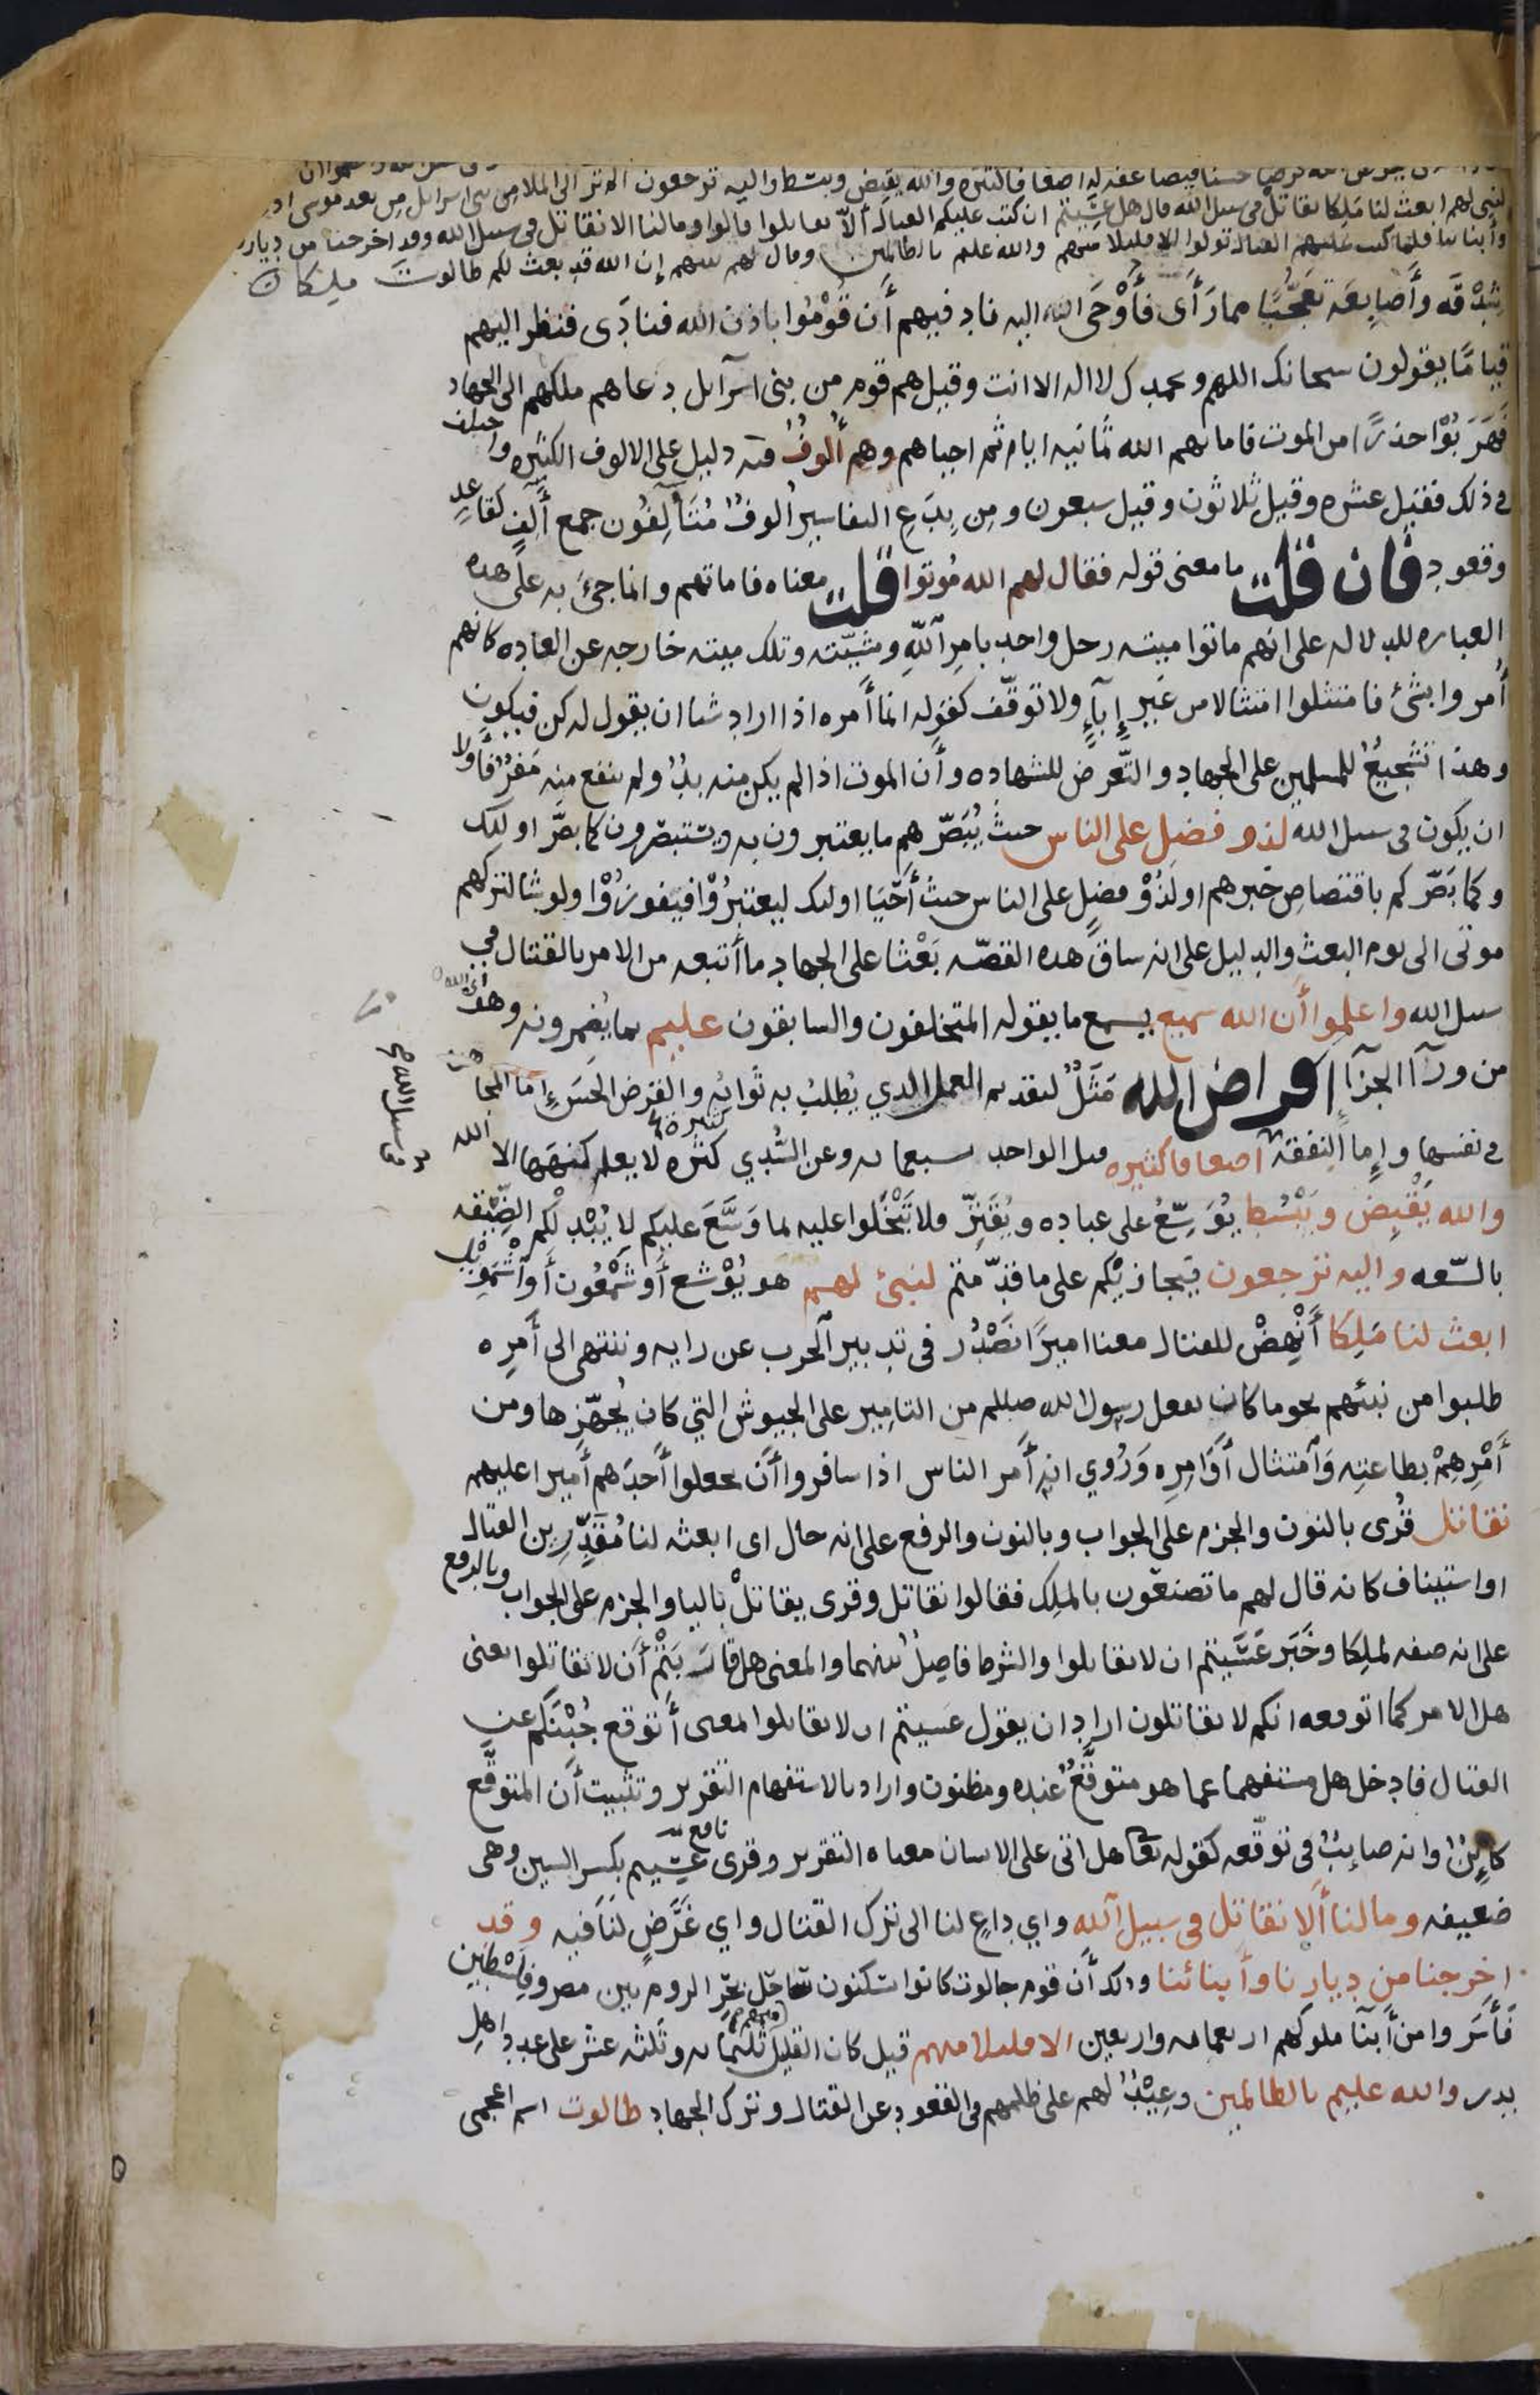 قرضا حسنا فيضاعفه له اضعافا كثيره والله يقبض ويبسط واليه ترجعون الم تر الى الملا من بنى اسرايل من بعد موسى اذ
لنبى لهم ابعث لنا ملكا نقاتل فى سبيل الله قال هل عسيتم ان كتب عليكم القتال ألّا تقاتلوا قالوا ومالنا الا نقاتل فى سبيل الله وقد اخرجنا من ديارنا
وأبنائنا فلما كتب عليهم القتال تولوا الا قليلا منهم والله عليم بالظالمين وقال لهم نبيهم إن الله قد بعث لكم طالوت ملكا
شِدْقه وأَصابعَه تعجّبًا مما رَأَى فأَوْحَى الله اليه نادِ فيهم أَن قُوْمُوا باذن الله فنادَى فنظر اليهم
قيامًا يقولون سبحانك اللهم وبحمدك لا اله الا انت وقيل هم قوم من بنى اسرآيل دعاهم ملكهم الى الجهاد
فهَرَبُوْا حذرًا من الموت فاماتهم الله ثمانيه ايام ثم احياهم وهم أُلُوفٌ فيه دليل على الالوف الكثيره واختلف
فى ذلك فقيل عشره وقيل ثلاثون وقيل سبعون ومِن بِدَعِ التفاسير اُلوفٌ مُتَآلِفُون جمع آلِفٍ كقاعدٍ
وقعود فان قلت ما معنى قوله فقال لهم الله مُوتوا قلت معناه فاماتهم وانما جِئَ به على هده
العباره للدلاله على انهم ماتوا ميته رجل واحد بامر اللّهِ ومشيّته وتلك ميته خارجه عن العاده كانهم
أُمروا بشئ فامتثلوا امتثالا من غير إبآءٍ ولا توقّف كقوله انما أمره اذا اراد شيا ان يقول له كن فيكون
وهذا تشجيعٌ للمسلمين على الجهاد والتّعرض للشهاده وأن الموت اذا لم يكن منه بدٌ ولم ينفع منه مفرٌ فأَولى
ان يكون فى سبيل الله لذو فضل على الناس حيث يُبَصّرهم ما يعتبرون به ويستبصرون كما بصّر اوليك
وكما بَصّركم باقتصاص خبرهم او لَذُوْ فضلٍ على الناس حيث أَحْيَا اوليك ليعتبرُوْا فيفوزُوْا ولو شا لتركهم
موتى الى يوم البعث والدليل على انه ساق هده القصّه بَعْثا على الجهاد ما أَتبعه من الامر بالقتال فى
سبيل الله واعلموا أن الله سميع يسمع ما يقوله المتخلفون والسابقون عليم بما يُضمرونه وهو
أى الله
من ورآ الجزآءِ اقراض الله مَثَلٌ لتقديم العمل الدي يُطلبُ به ثوابُه والقرض الحَسَن إما المجاهده
فى سبيل الله
فى نفسها وإما النفقه اضعافا كثيره قيل الواحد بسبعمايه وعن السُّدي كثره لا يعلم كنهَها الا الله
والله يَقْبِض ويَبْسُط يُوَسِّعُ على عباده ويُقَتِرّ فلا تَبْخَلوا عليه لما وَسَّعَ عليكم لا يُبْدِلْكم الضِّيْقه
بالسّعه واليه ترجعون فيجازيْكم على ما قدّمتم لنبئ لهم هو يُوْشع أو شَمْعُون أَو آشْمَوِيْل
ابعث لنا مَلِكا أَنْهِضْ للقتال معنا اميرًا نَصْدُر فى تدبير الحرب عن رايه وننتهى الى أمرِه
طلبوا من نبيّهم نحو ما كان يفعل رسول الله صلعم من التامير على الجيوش التي كان يُجهّزها ومن
أَمْرِهِمْ بطاعتِه وَآمتثال أَوَامِرِه وَرُوي انه أَمر الناس اذا سافروا أَن يجعلوا أَحدَهم أَميرا عليهم
نقاتل قُرى بالنون والجزم على الجواب وبالنون والرفع على انه حال اى ابعثه لنا مُقدِّرين القتال
او استيناف كانه قال لهم ما تصنعون بالملِك فقالوا نقاتل وقرى يقاتلْ باليا والجزم على الجواب وبالرفع
على انه صفه لملِكا وخَبَر عَسَيتم ان لا تقاتلوا والشرط فاصِلٌ بينهما والمعنى هل قارَبْتم أَن لا تقاتلوا يعنى
هل الامر كما اتوقعه انكم لا تقاتلون اراد ان يقول عسيتم ان لا تقاتلوا بمعنى أَتوقع جُبْنَكم عن
القتال فادخل هل مستفهما عما هو متوقَّعٌ عنده ومظنون واراد بالاستفهام التقرير وتثبيت أَن المتوقّع
كائِنٌ وانه صائبٌ فى توقّعه كقوله تعا هل اتى على الانسان معناه التقرير وقرى عسِيتم بكسر السين وهى
نافع
ضعيفه ومالنا ألا نقاتل فى سبيل آلله واي داعٍ لنا الى ترك القتال واي غَرَضٍ لنا فيه وقد
اخرجنا من ديارنا وأبنائنا ودلك أَن قوم جالوت كانوا يسكنون ساحل بحرِ الروم بين مصر وفِلَسْطين
فأَسَروا من أَبنآ ملوكهم اربعمايه واربعين الا قليلا منهم قيل كان القليل ثلثمايه وثلثه عشر على عدد اهل
بدر والله عليم بالظالمين وعِيْدٌ لهم على ظلمهم فى القعود عن القتال وترك الجهاد طالوت اسم اعجمى